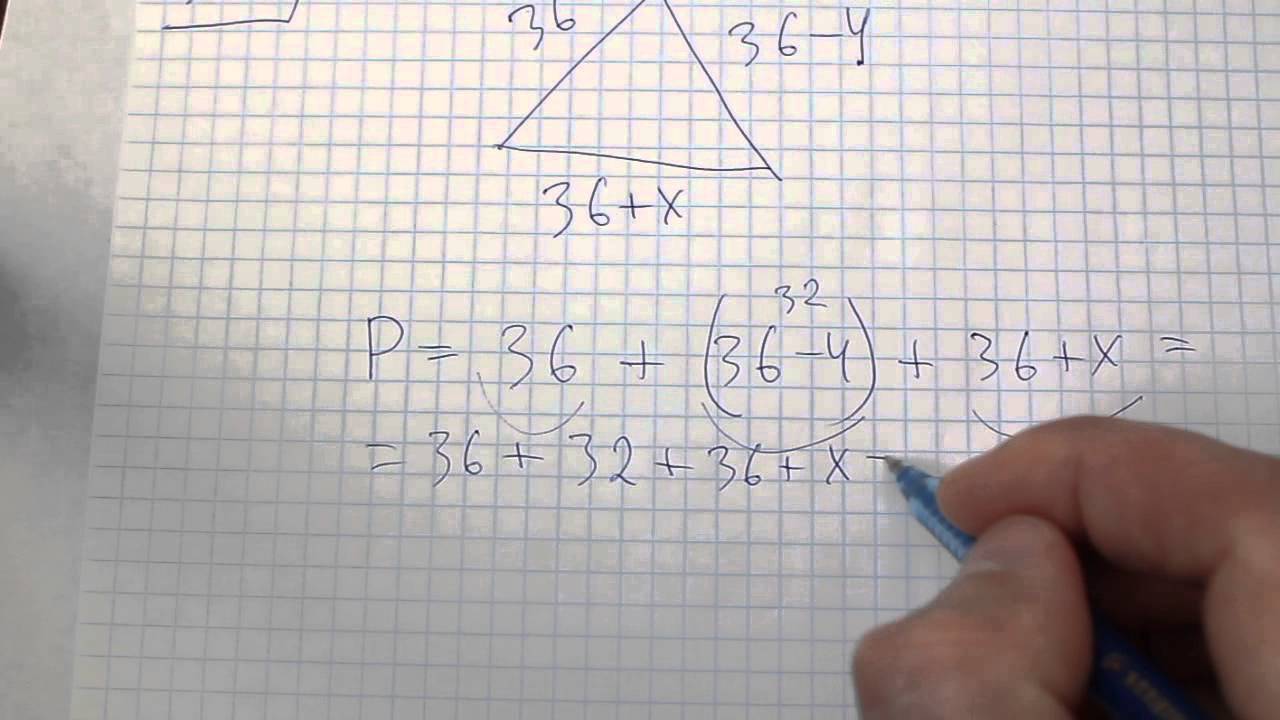 36
36-4
36+x
32
P = 36 + (36-4) + 36+x =
= 36 + 32 + 36 + x =